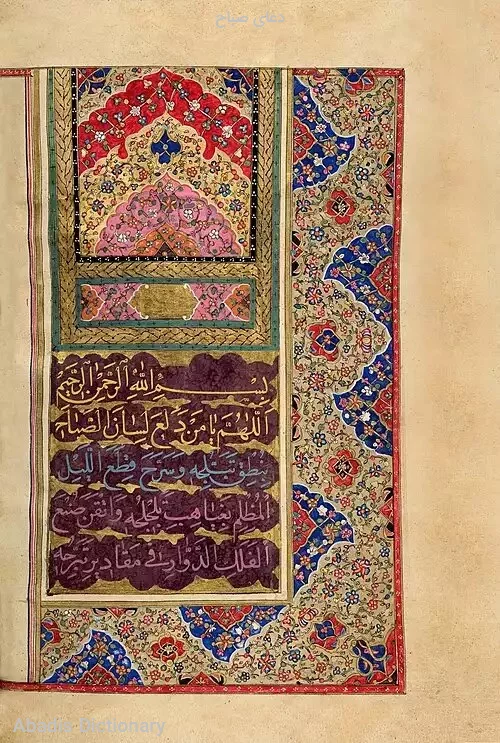 دعای صباح
بِسْمِ اللهِ الرَّحْمٰنِ الرَّحِيمِ
اَللّٰهُمَّ يَا مَنْ دَلَعَ لِسَانَ الصَّبَاحِ
بِنُطْقِ تَبَلُّجِهِ وَسَرَّحَ قِطَعَ اللَّيْلِ
الْمُظْلِمِ بِغَيَاهِبِ تَلَجْلُجِهِ وَاَتْقَنَ صُنْعَ
الْفَلَكِ الدَّوَّارِ فِي مَقَادِيرِ تَبَرُّجِهِ
Abadis Dictionary